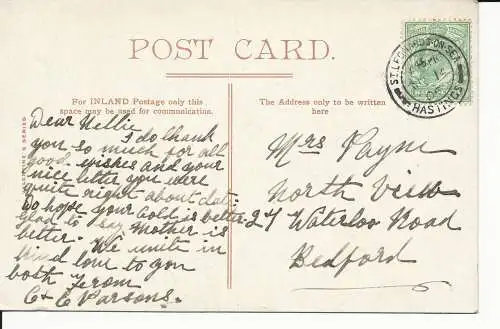 POST CARD.
For INLAND Postage only this
space may be used for communication.
The Address only to be written
here
Dear Nellie
I do thank
you so much for all
good wishes and your
nice letter you were
quite right about date
Do hope your Cold is better
glad to say Mother is
better. We unite in
kind love to you
both from
C & E Parsons.
Mrs Payne
North View
27 Waterloo Road
Bedford
ST LEONARDS-ON-SEA
HASTINGS
SERIES